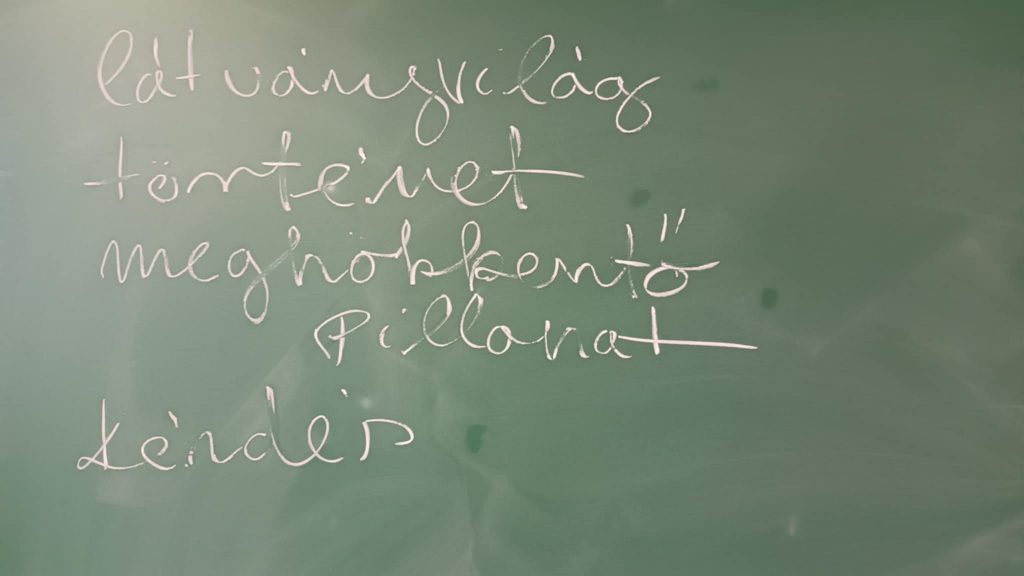 látványvilág
történet
meghökkentő
pillanat
kérdés